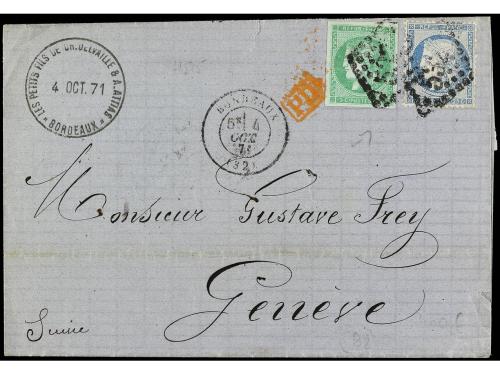 LES PETITS FILS DE CH. DELVAILLE & A. ATTIAS
4 OCT. 71
BORDEAUX
PD
BORDEAUX
5E 4
OCT.
71
(32)
Monsieur Gustave Frey
Genève
Suisse